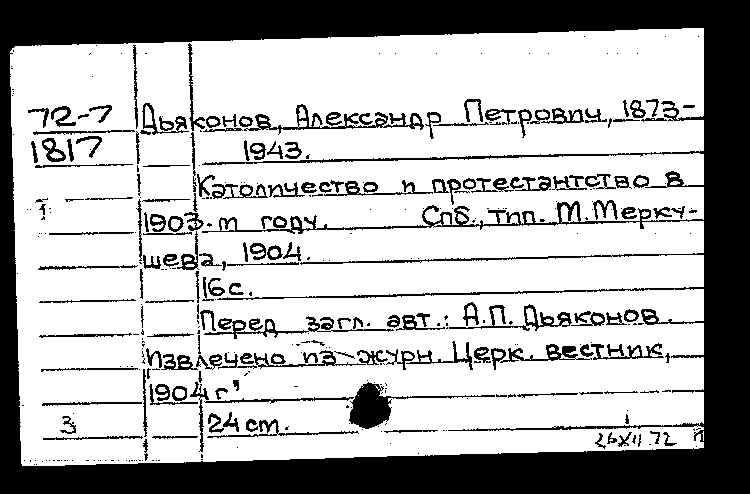 72-7 Дьяконов, Александр Петрович, 1873-
1817 1943.
Католичество и протестантство в
1 1903-м году. Спб., тип. М.Мерку-
шева, 1904.
16 с.
Перед загл. авт.: А.П. Дьяконов.
Извлечено из журн. Церк. вестник,
1904 г"
3 24 см.
26 XII 72 п